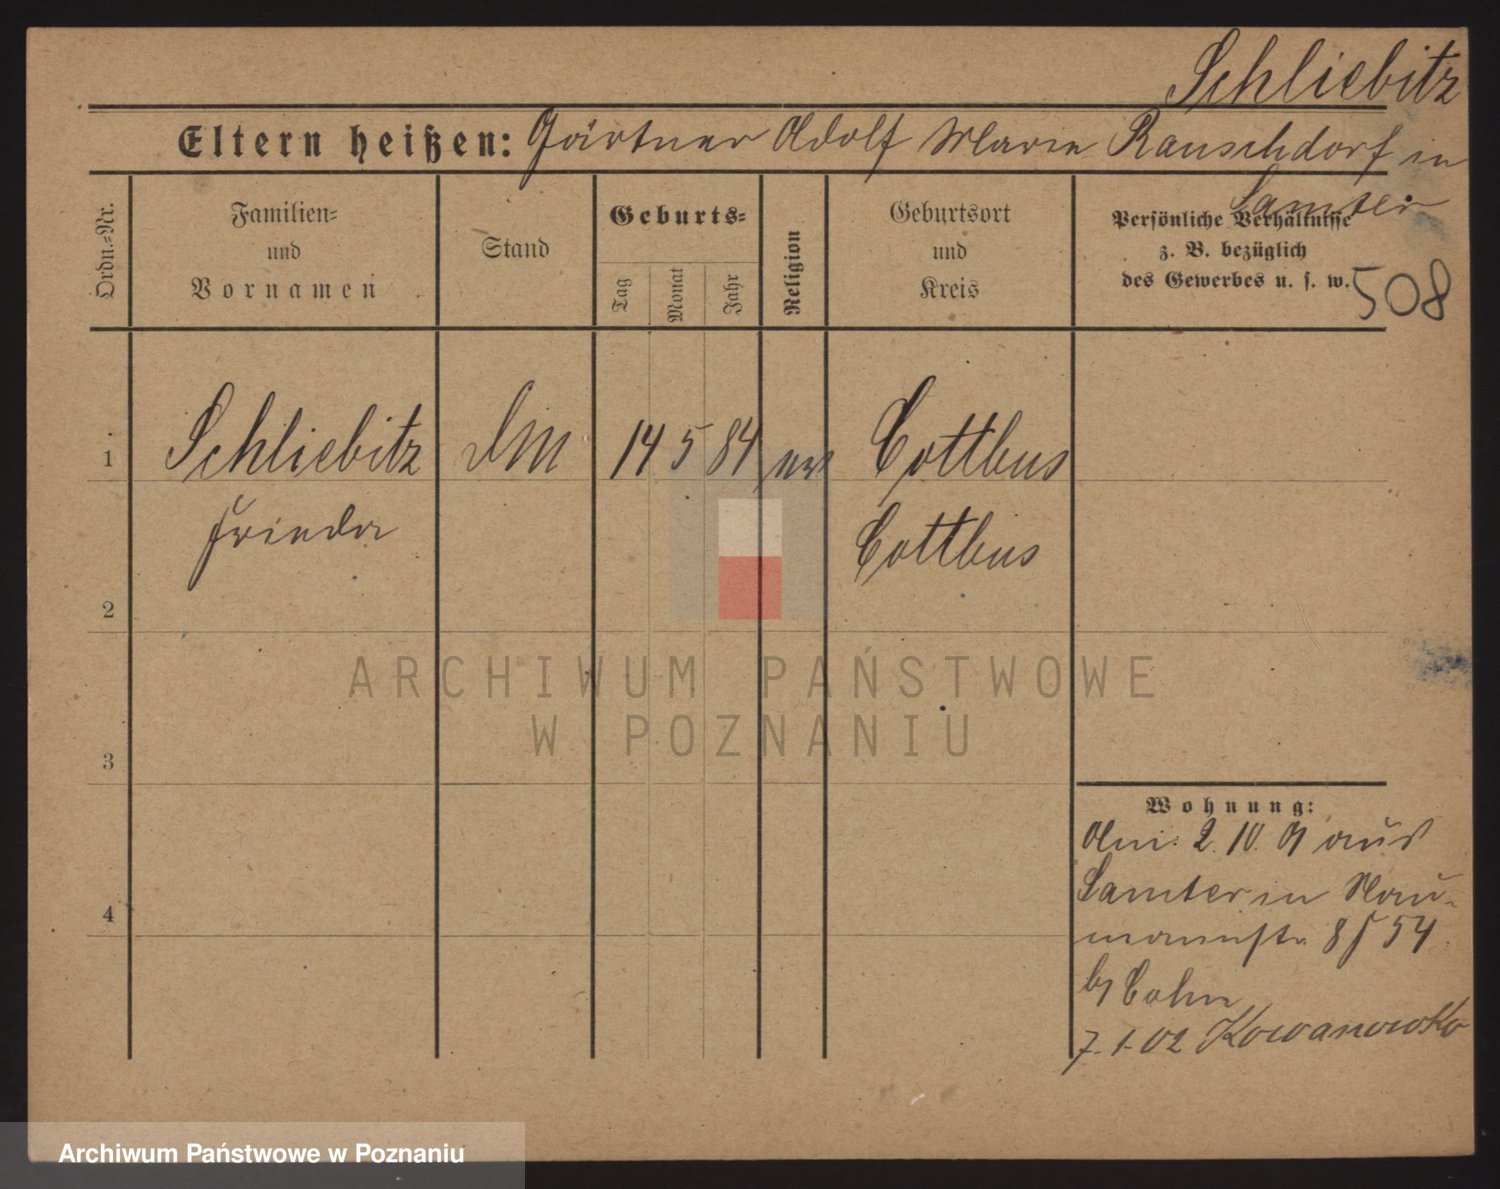 Schliebitz
Eltern heißen: Gärtner Adolf Marie Rauschdorf in
Samter
Ordn.-Nr.
Familien-
und
Vornamen
Stand
Geburts-
Tag
Monat
Jahr
Religion
Geburtsort
und
Kreis
Persönliche Verhältnisse
z. B. bezüglich
des Gewerbes u. s. w.
508
1
Schliebitz
14 5 84
Cottbus
Frieda
Cottbus
2
3
4
ARCHIWUM PAŃSTWOWE
W POZNANIU
Wohnung:
2. IV. 01 aus
Samter in Nau-
mannstr 8
Cohn
7.1.02 Kowanowko
Archiwum Państwowe w Poznaniu